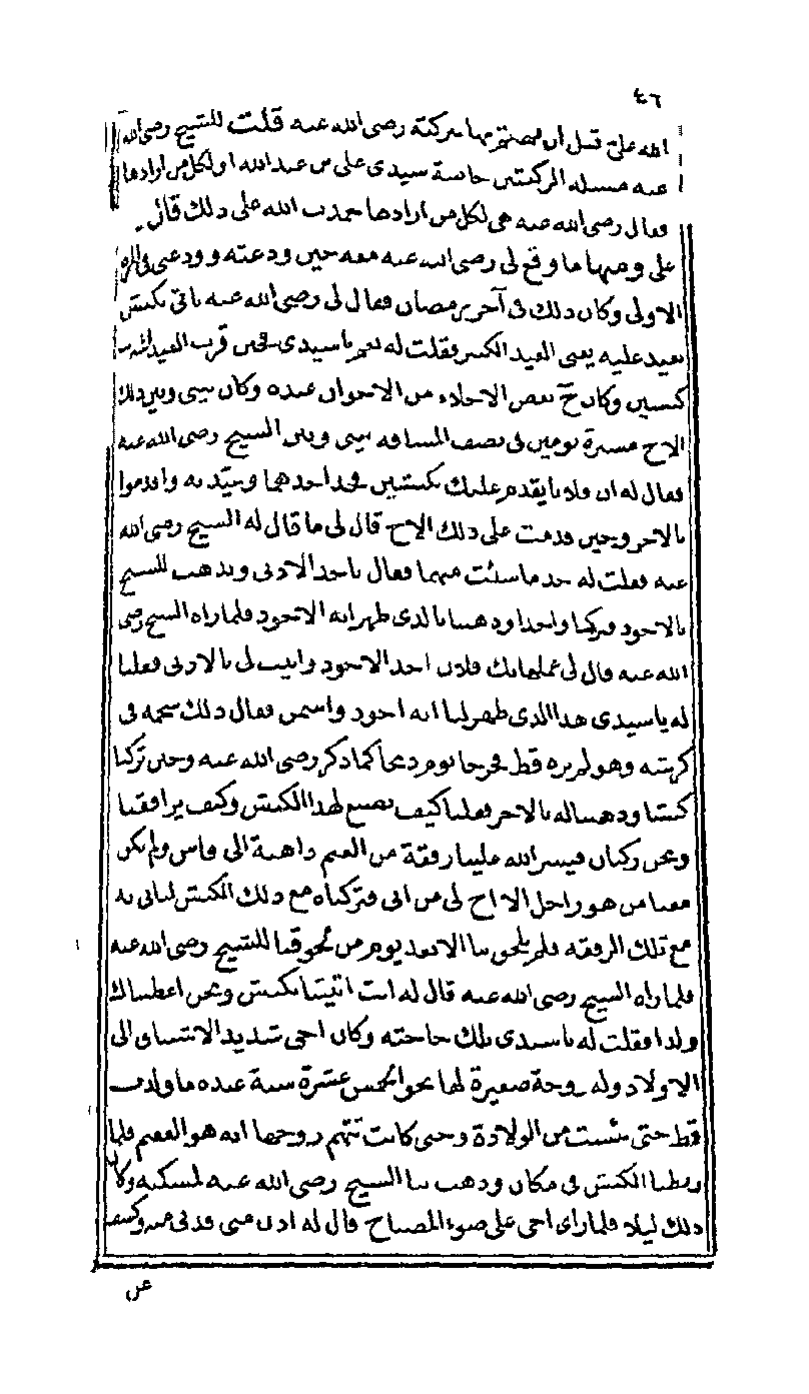 ٤٦
الله على قبل أن فصتهم بها ببركته رضي الله عنه قلت للشيخ رضي الله
عنه مسئلة الركبتين خاصة بسيدي علي بن عبد الله أو لكل من أرادها
فقال رضي الله عنه هي لكل من أرادها حمدت الله على ذلك قال
على ومنها ما وقع لي رضي الله عنه معه حين ودعته وودعني في المرة
الأولى وكان ذلك في آخر رمضان فقال لي رضي الله عنه تأتي بكبش
نعيد عليه يعني العيد الكبير فقلت له نعم يا سيدي فحين قرب العيد اشتريت
كبشين وكان خ بعض الأجلاء من الأخوان عنده وكان بيني وبين ذلك
الأخ مسيرة يومين في نصف المسافة بيني وبين الشيخ رضي الله عنه
فقال له إن فلانا يقدم عليك بكبشين فخذ أحدهما وعيد به واقدموا
بالآخر وحين قدمت على ذلك الأخ قال لي ما قال له الشيخ رضي الله
عنه فقلت له خذ ما شئت منهما فقال نأخذ الأدنى ويذهب للشيخ
بالأجود فتركنا واحدا وذهبنا بالذي ظهر أنه الأجود فلما رآه الشيخ رضي
الله عنه قال لي عملها بك فلان أخذ الأجود وأتيت لي بالأدنى فقلنا
له يا سيدي هذا الذي ظهر لنا أنه أجود وأسمن فقال ذلك شحمه في
كرشه وهو لم يره قط فخرجا يوم ذبحا كما ذكر رضي الله عنه وحين تركنا
كبشا وذهبنا له بالآخر فقلنا كيف نصنع لهذا الكبش وكيف يرافقنا
ونحن ركبان فيسر الله علينا رفقة من الغنم ذاهبة إلى فاس ولم يكن
معنا من هو راجل إلا أخ لي من أبي فتركناه مع ذلك الكبش ليأتي به
مع تلك الرفقة فلم يلحق بنا إلا بعد يوم من لحوقنا للشيخ رضي الله عنه
فلما رآه الشيخ رضي الله عنه قال له أنت أتيتنا بكبش ونحن أعطيناك
ولدا فقلت له يا سيدي تلك حاجته وكان أخي شديد الاشتياق إلى
الأولاد وله زوجة صغيرة لها نحو الخمس عشرة سنة عنده ما ولدت
قط حتى يئست من الولادة وحتى كانت تتهم زوجها أنه هو العقيم فلما
ربطنا الكبش في مكان وذهب بنا الشيخ رضي الله عنه لمسكنه وكان
ذلك ليلا فلما رأى أخي على ضوء المصباح قال له ادن مني فدنى منه وكشف
عن